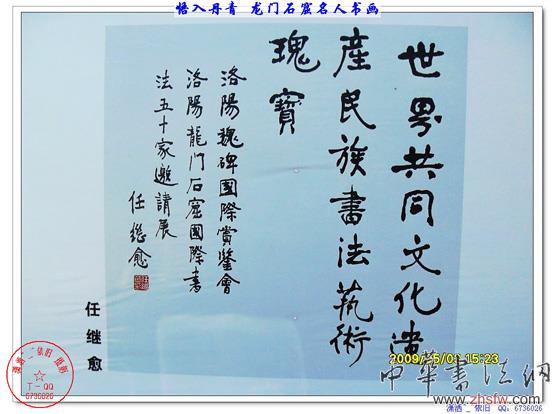 悟入丹青 龙门石窟名人书画
世界共同文化遺
產民族書法藝術
瑰寶
洛陽魏碑國際賞鑒會
洛陽龍門石窟國際書
法五十家邀請展
任继愈
任继愈
15:23
中華書法網
www.zhsfw.com
潇洒"_依旧 QQ: 6736026
6736026